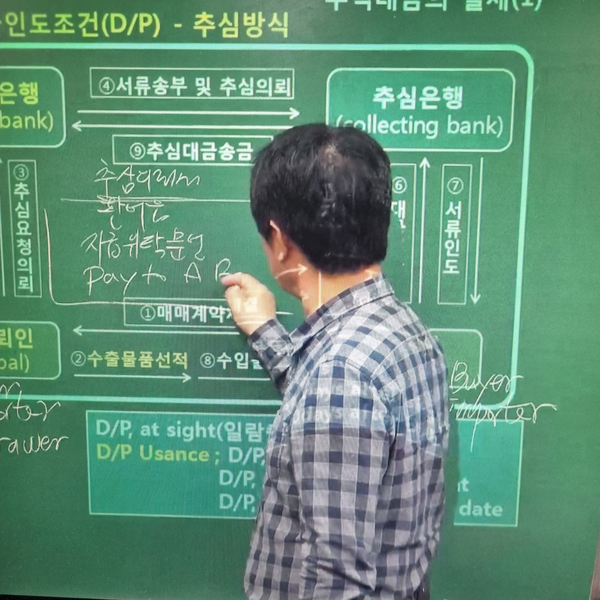 인도조건(D/P) - 추심방식
은행
bank)
④서류송부 및 추심의뢰
추심은행
(collecting bank)
⑨추심대금송금
③추심요청의뢰
추심의뢰서
환어음
Pay to A B
⑥
⑦서류인도
①매매계약
뢰인
pal)
②수출물품선적
⑧수입
Buyer
Importer
rter
rawer
D/P, at sight(일람
D/P Usance ; D/P,
D/P,
D/P,
date